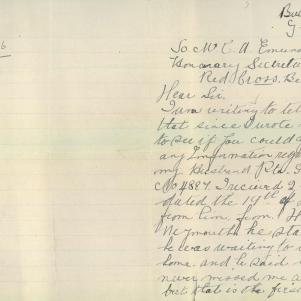 6
To Mr C. A. Emun
Honorary Secreta
Red Cross. Be
Dear Sir.
I am writing to tel
that since I wrote
to see if you could
any information reg
my Husband Pte.
No 4887. I received 2
dated the 19th of
from him, from
Weymouth he sta
he was waiting to
home. and he said
never missed me a
but that is the firs